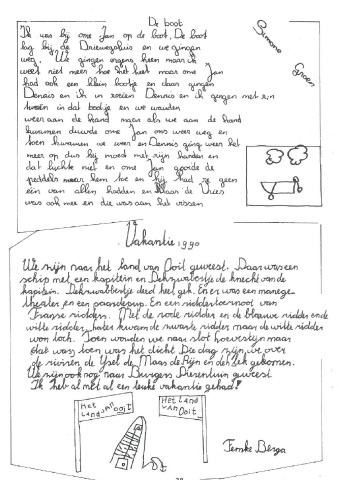 De boot
Ik was bij ome Jan op de boot. De boot
lag bij de Driewegsluis en we gingen
weg. We gingen ergens heen maar ik
weet niet meer hoe het heet maar ome Jan
had ook een klein bootje en daar gingen
Dennis en ik in roeien Dennis en ik gingen met z'n
tweeën in dat bootje en we wouden
weer aan de kand maar als we aan de kand
kwamen duwde ome Jan ons weer weg en
toen kwamen we weer en Dennis ging weer het
meer op dus hij moest met zijn handen en
dat lukte niet en ome Jan gooide de
peddels naar hem toe en hij had ze geen
één van allen hadden en Klaar de Vries
was ook mee en die was aan het vissen
Simone Groen
Vakantie 1990
We zijn naar het land van Ooit geweest. Daar was een
schip met een kapitein en Dekzwabertje de knecht van de
kapitein. Dekzwabertje deed heel gek. En er was een manege-
theater en een paardenpap. En een riddertoernooi van
Franse ridders. Met de rode ridder en de blauwe ridder en de
witte ridder, later kwam de zwarte ridder maar de witte ridder
won toch. Toen wouden we naar slot Loevestijn maar
dat was toen was het dicht. Die dag zijn we over
de rivieren de IJsel de Maas de Rijn en de Lek gekomen.
We zijn ook nog naar Burgers Dierentuin geweest
Ik heb al met al een leuke vakantie gehad!
Het Land van Ooit
Het Land van Ooit
Femke Berga